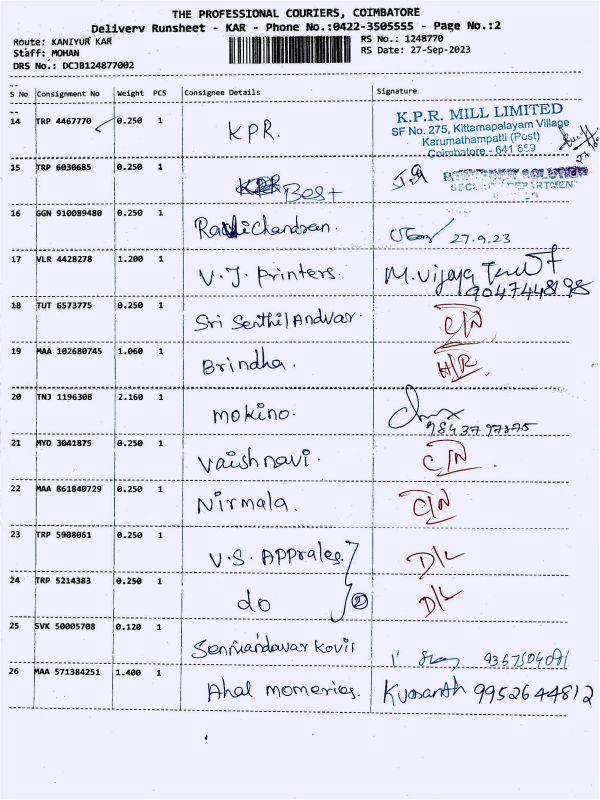 THE PROFESSIONAL COURIERS, COIMBATORE
Delivery Runsheet - KAR - Phone No.:0422-3505555 - Page No.:2
Route: KANIYUR KAR
Staff: MOHAN
DRS No.: DCJB124877002
RS No.: 1248770
RS Date: 27-Sep-2023
S No Consignment No Weight PCS Consignee Details Signature
14 TRP 4467770 0.250 1 KPR.
K.P.R. MILL LIMITED
SF No. 275, Kittamapalayam Village
Karumathampatti (Post)
Coimbatore - 641 659
15 TRP 6030685 0.250 1 Best
SOLUTION
SECURITY DEPARTMENT
16 GGN 910089480 0.250 1 Ravichandran. 27.9.23
17 VLR 4428278 1.200 1 V.J. Printers. M. Vijaya
9047448198
18 TUT 6573775 0.250 1 Sri Senthil Andvar. C/N
19 MAA 102680745 1.060 1 Brindha. H/R
20 TNJ 1196308 2.160 1 mokino.
9843797375
21 MYD 3041875 0.250 1 Vaishnavi. C/N
22 MAA 861840729 0.250 1 Nirmala. C/N
23 TRP 5908061 0.250 1 V.S. Apprales. D/L
24 TRP 5214383 0.250 1 do 2 D/L
25 SVK 50005708 0.120 1 Senniandavar Kovil
26 MAA 571384251 1.400 1 Ahal momeries. Kvasanth 9952644812